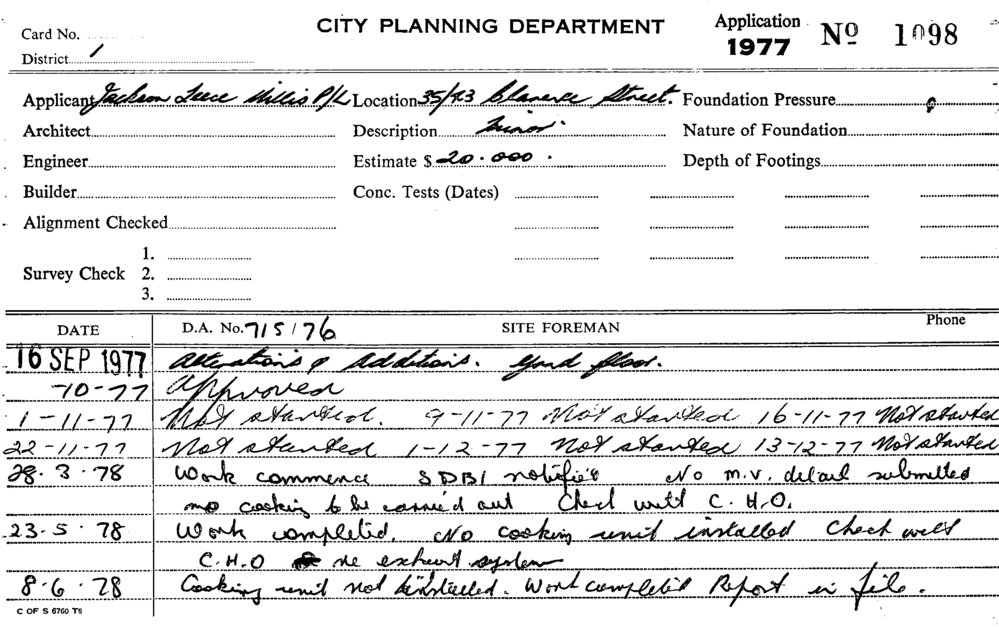 CITY PLANNING DEPARTMENT
Application 1977 No 1098
Card No.
District 1
Applicant Jackson Teece Willis P/L Location 35/43 Clarence Street. Foundation Pressure
Architect Description Minor. Nature of Foundation
Engineer Estimate $ 20.000. Depth of Footings
Builder Conc. Tests (Dates)
Alignment Checked
Survey Check 1.
2.
3.
DATE D.A. No. 715/76 SITE FOREMAN Phone
16 SEP 1977 Alterations & Additions. Grnd floor.
10-77 Approved
1-11-77 Not started. 9-11-77 Not started 16-11-77 Not started
22-11-77 Not started 1-12-77 Not started 13-12-77 Not started
28.3.78 Work commence SDBI notified No M.V. detail submitted
no cooking to be carried out Check with C.H.O.
23.5.78 Work completed. No cooking unit installed Check with
C.H.O re exhaust system
8.6.78 Cooking unit not installed. Work completed Report in file.
C OF S 6760 T6